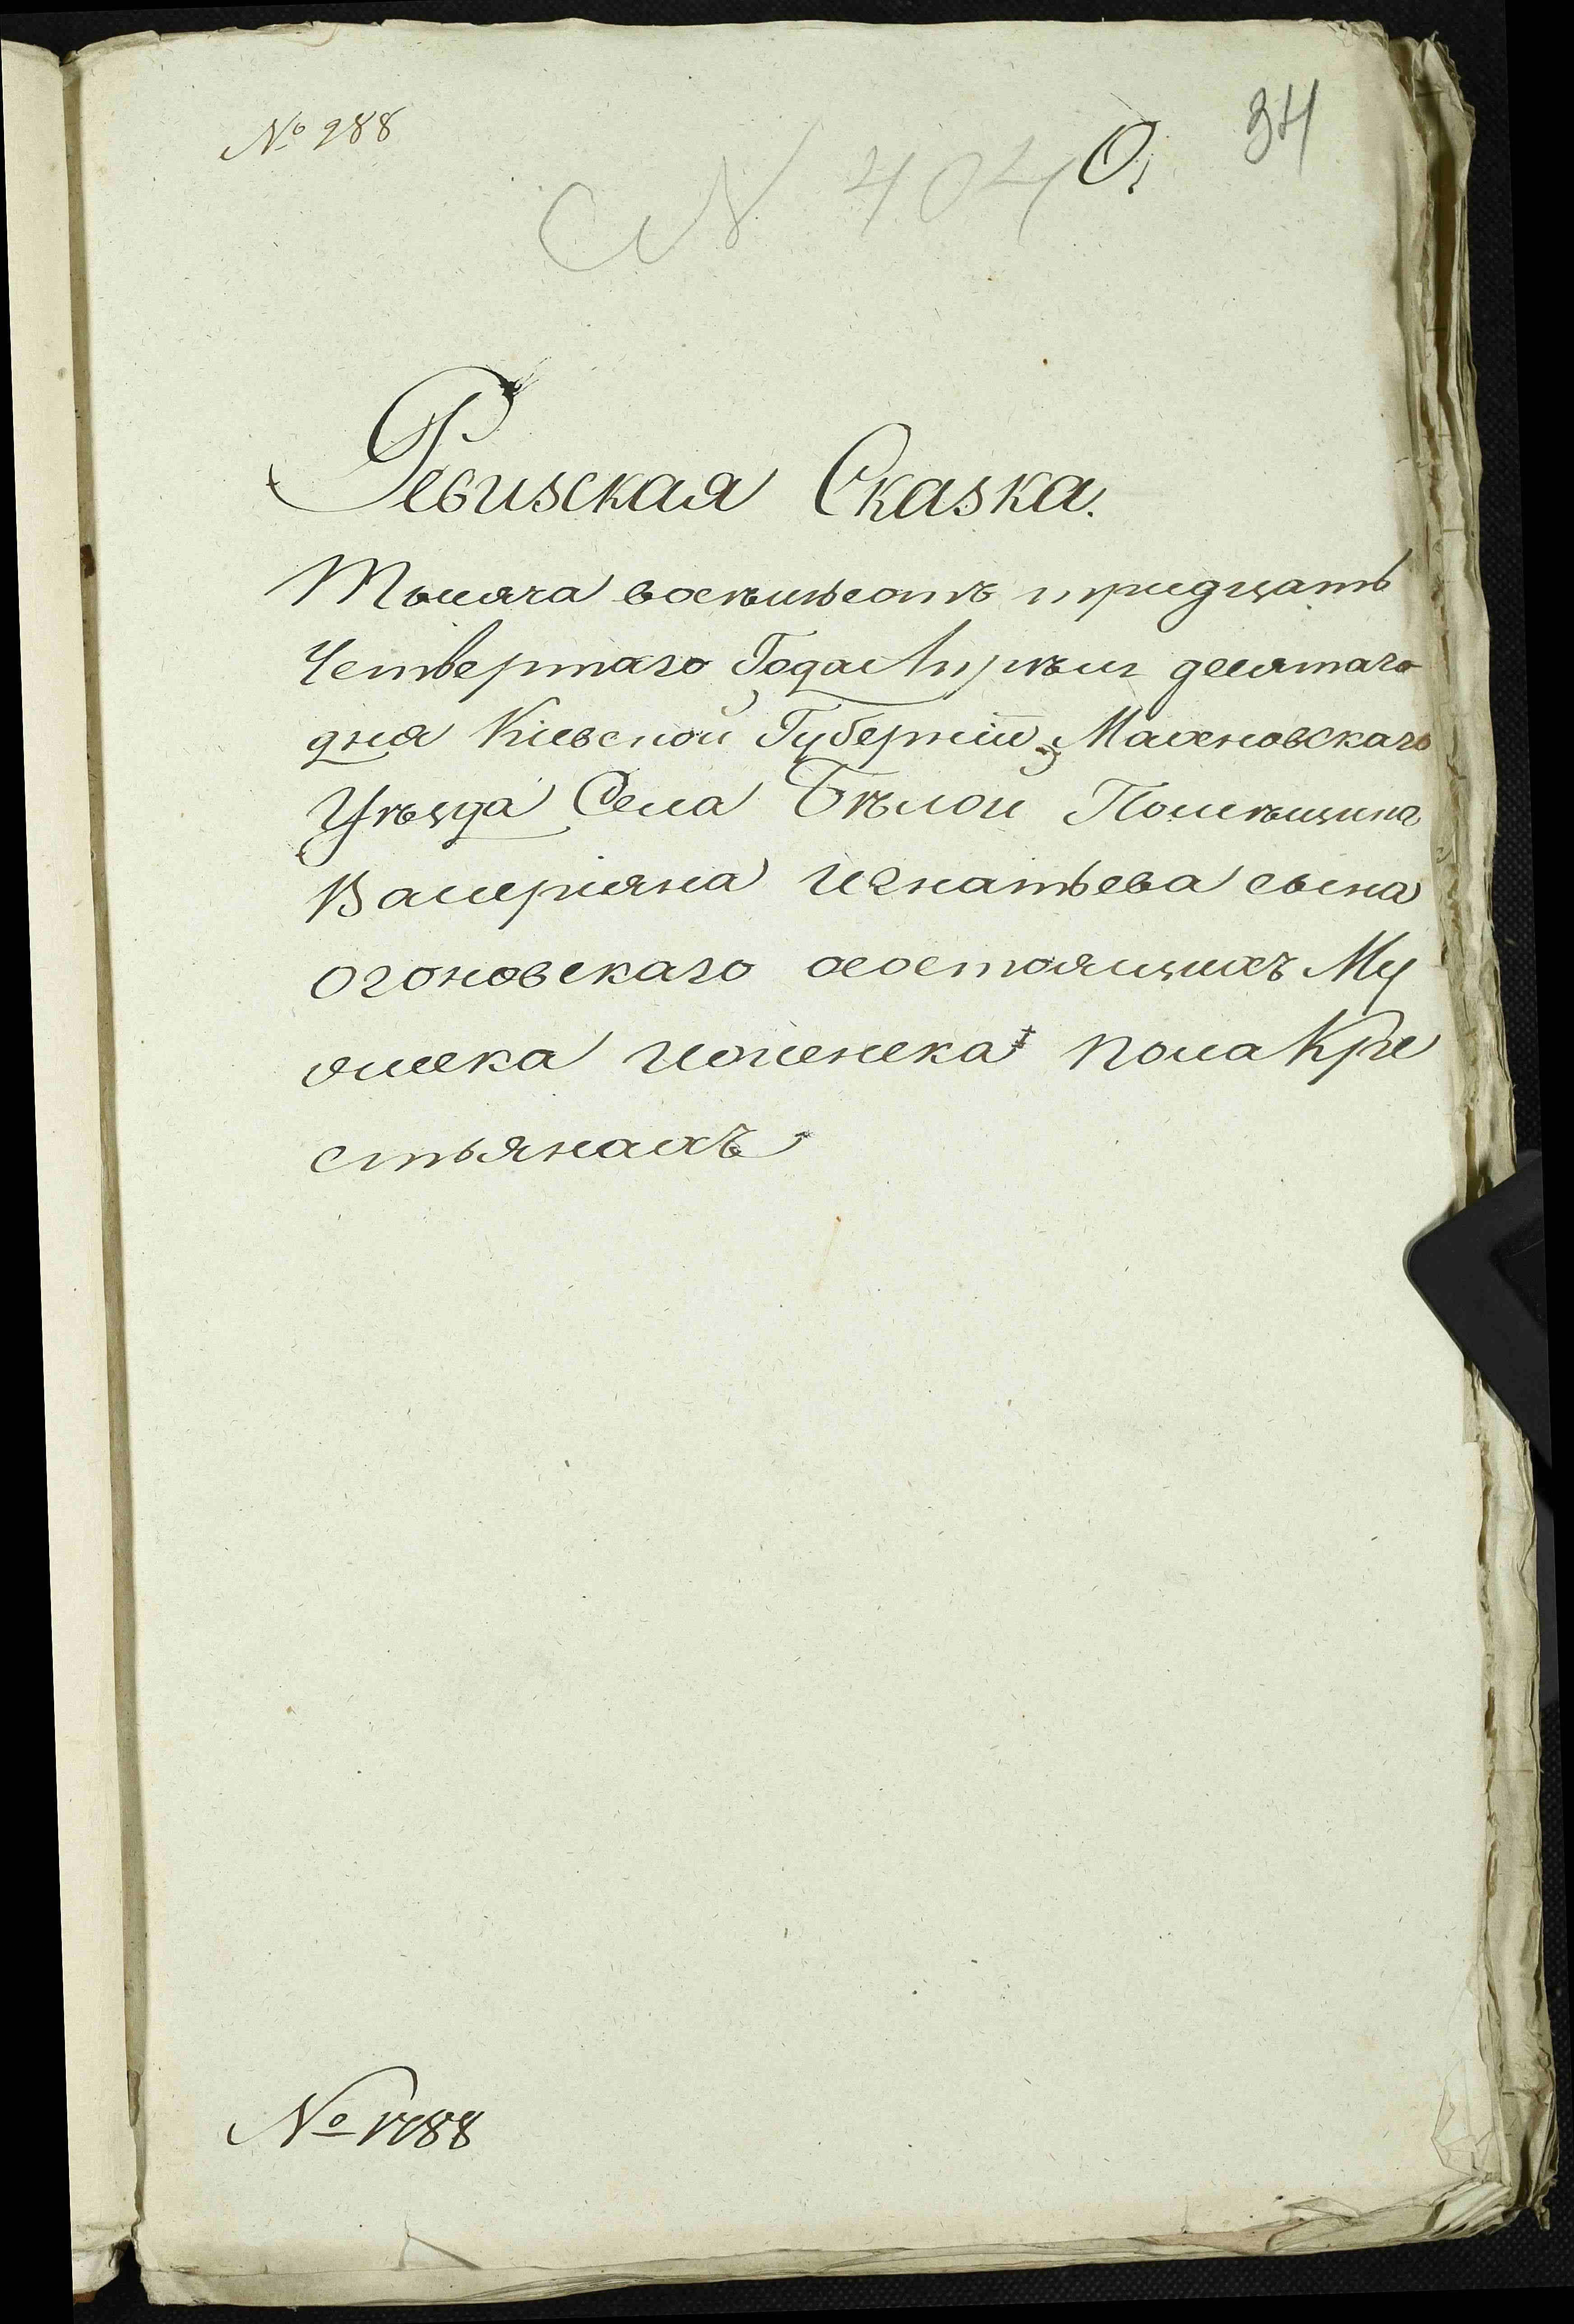 № 988
34
N 404 О.
Ревизская Сказка.
Тысяча восѣмьсотъ тридцать
Четвертаго Года Апрѣля десятаго
дня Кіевской Губерніи Махновскаго
Уѣзда Села Бѣлой Помѣщика
Валеріяна Игнатьева сына
Огоновскаго состоящихъ Му
жеска иженска пола Кре
стьянахъ
№ 1788